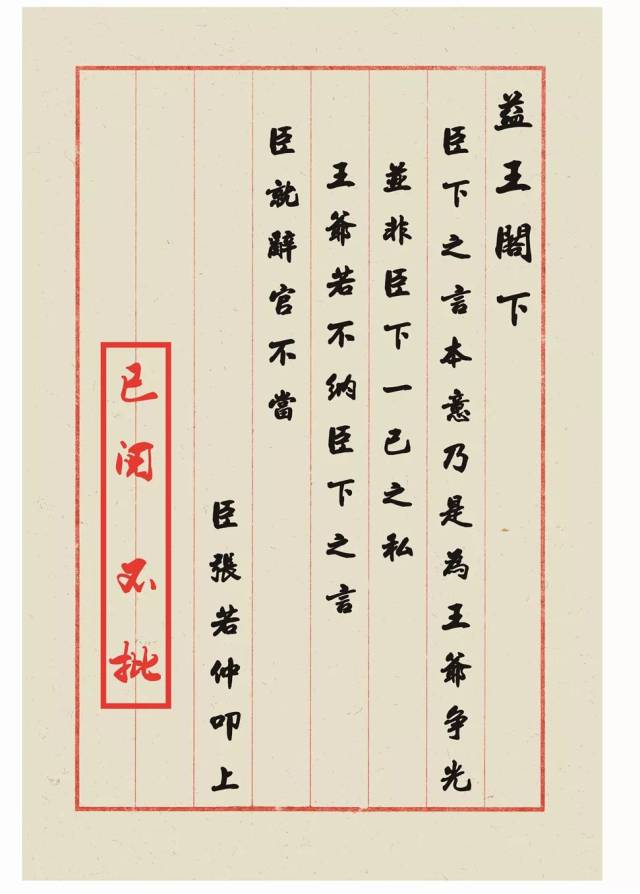 益王閣下
臣下之言本意乃是為王爺争光
並非臣下一己之私
王爺若不納臣下之言
臣就辭官不當
臣張若仲叩上
已阅不批